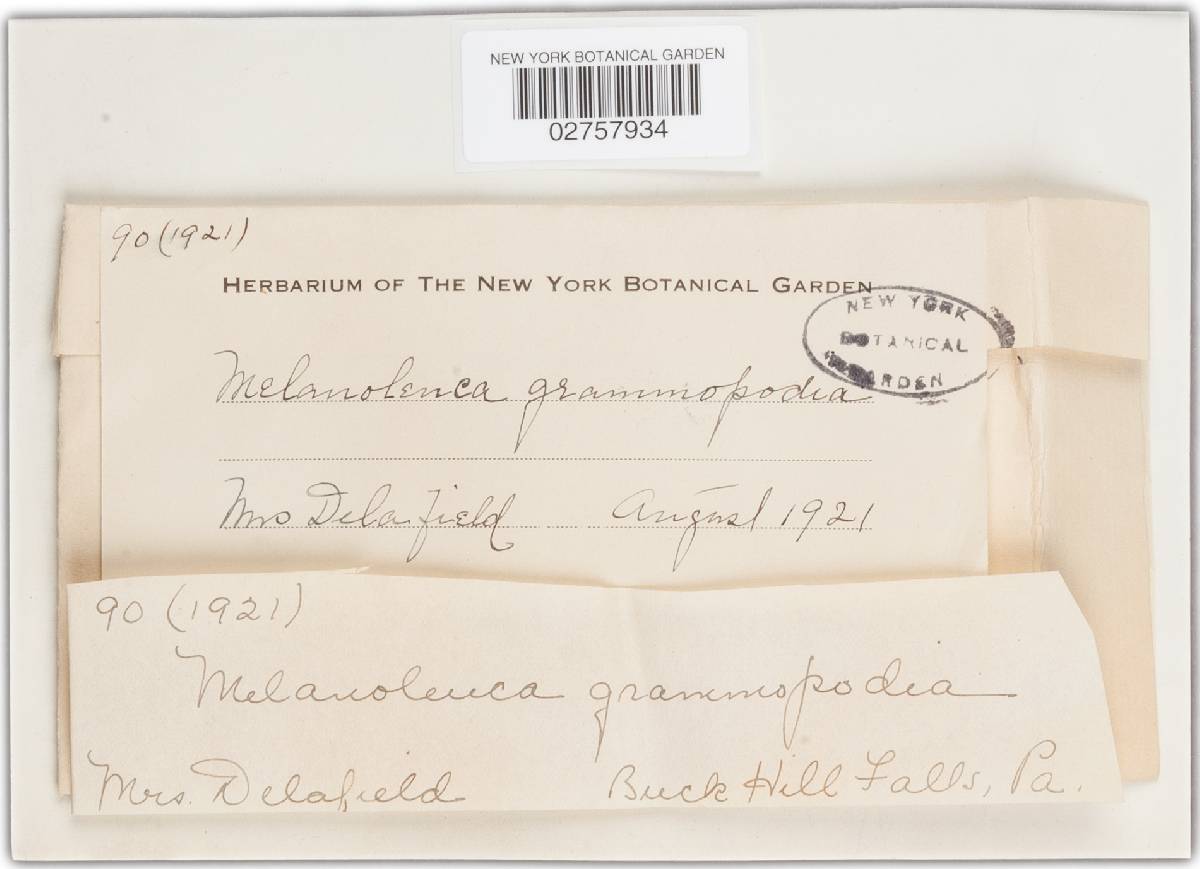 NEW YORK BOTANICAL GARDEN
02757934
90 (1921)
HERBARIUM OF THE NEW YORK BOTANICAL GARDEN
NEW YORK
BOTANICAL
GARDEN
Melanoleuca grammopodia
Mrs Delafield August 1921
90 (1921)
Melanoleuca grammopodia
Mrs. Delafield Buck Hill Falls, Pa.